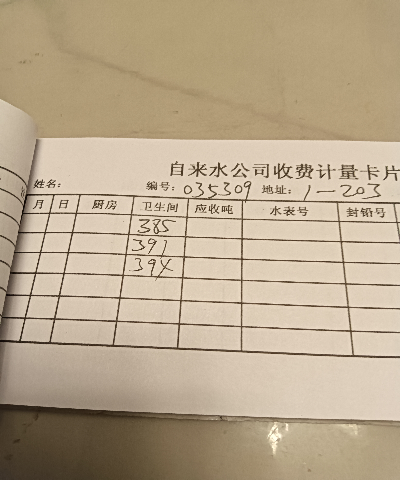 自来水公司收费计量卡片
姓名: 编号: 035309 地址: 1-203
月 日 厨房 卫生间 应收吨 水表号 封铅号
385
391
394